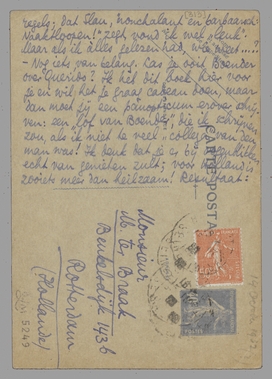 regels: dat Elan, nonchalant en barbaarsch
Naaktloopen!" zegt vond ik wel "leuk".
Maar als ik alles gelezen had, wie weet....?
- Nog iets van belang. Las je ooit Boender
over Querido? Ik heb dit boek hier voor
je en wil het je graag cadeau doen, maar
dan moet jij een panopticum erover schrij-
ven: een "lof van Boender", die ik schrijven
zou, als ik niet te veel "collega" van den
man was! Ik denk dat je er bij
echt van genieten zult; voor Holland is
zooiets meer dan heilzaam! Resultaat:
CARTE POSTALE
Monsieur
M. ter Braak
Beukelsdijk 143b
Rotterdam
(Hollande)
5249